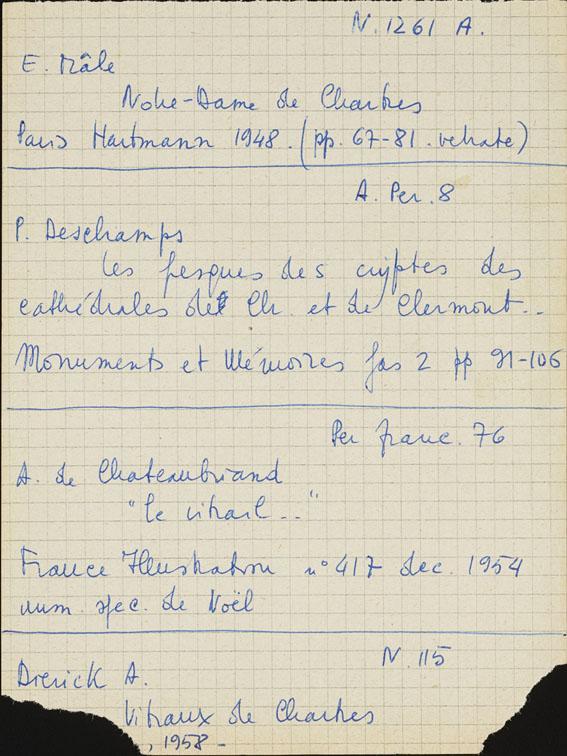 N. 1261 A.
E. Mâle
Notre-Dame de Chartres
Paris Hartmann 1948. (pp. 67-81. vetrate)
A. Per. 8
P. Deschamps
Les fresques des cryptes des
cathédrales de Ch. et de Clermont..
Monuments et Mémoires fas 2 pp 91-106
Per franc. 76
A. de Chateaubriand
"Le vitrail..."
France Illustration n° 417 dec. 1954
num. spec. de Noël
N. 115
Drerick A.
Vitraux de Chartres
, 1958 -